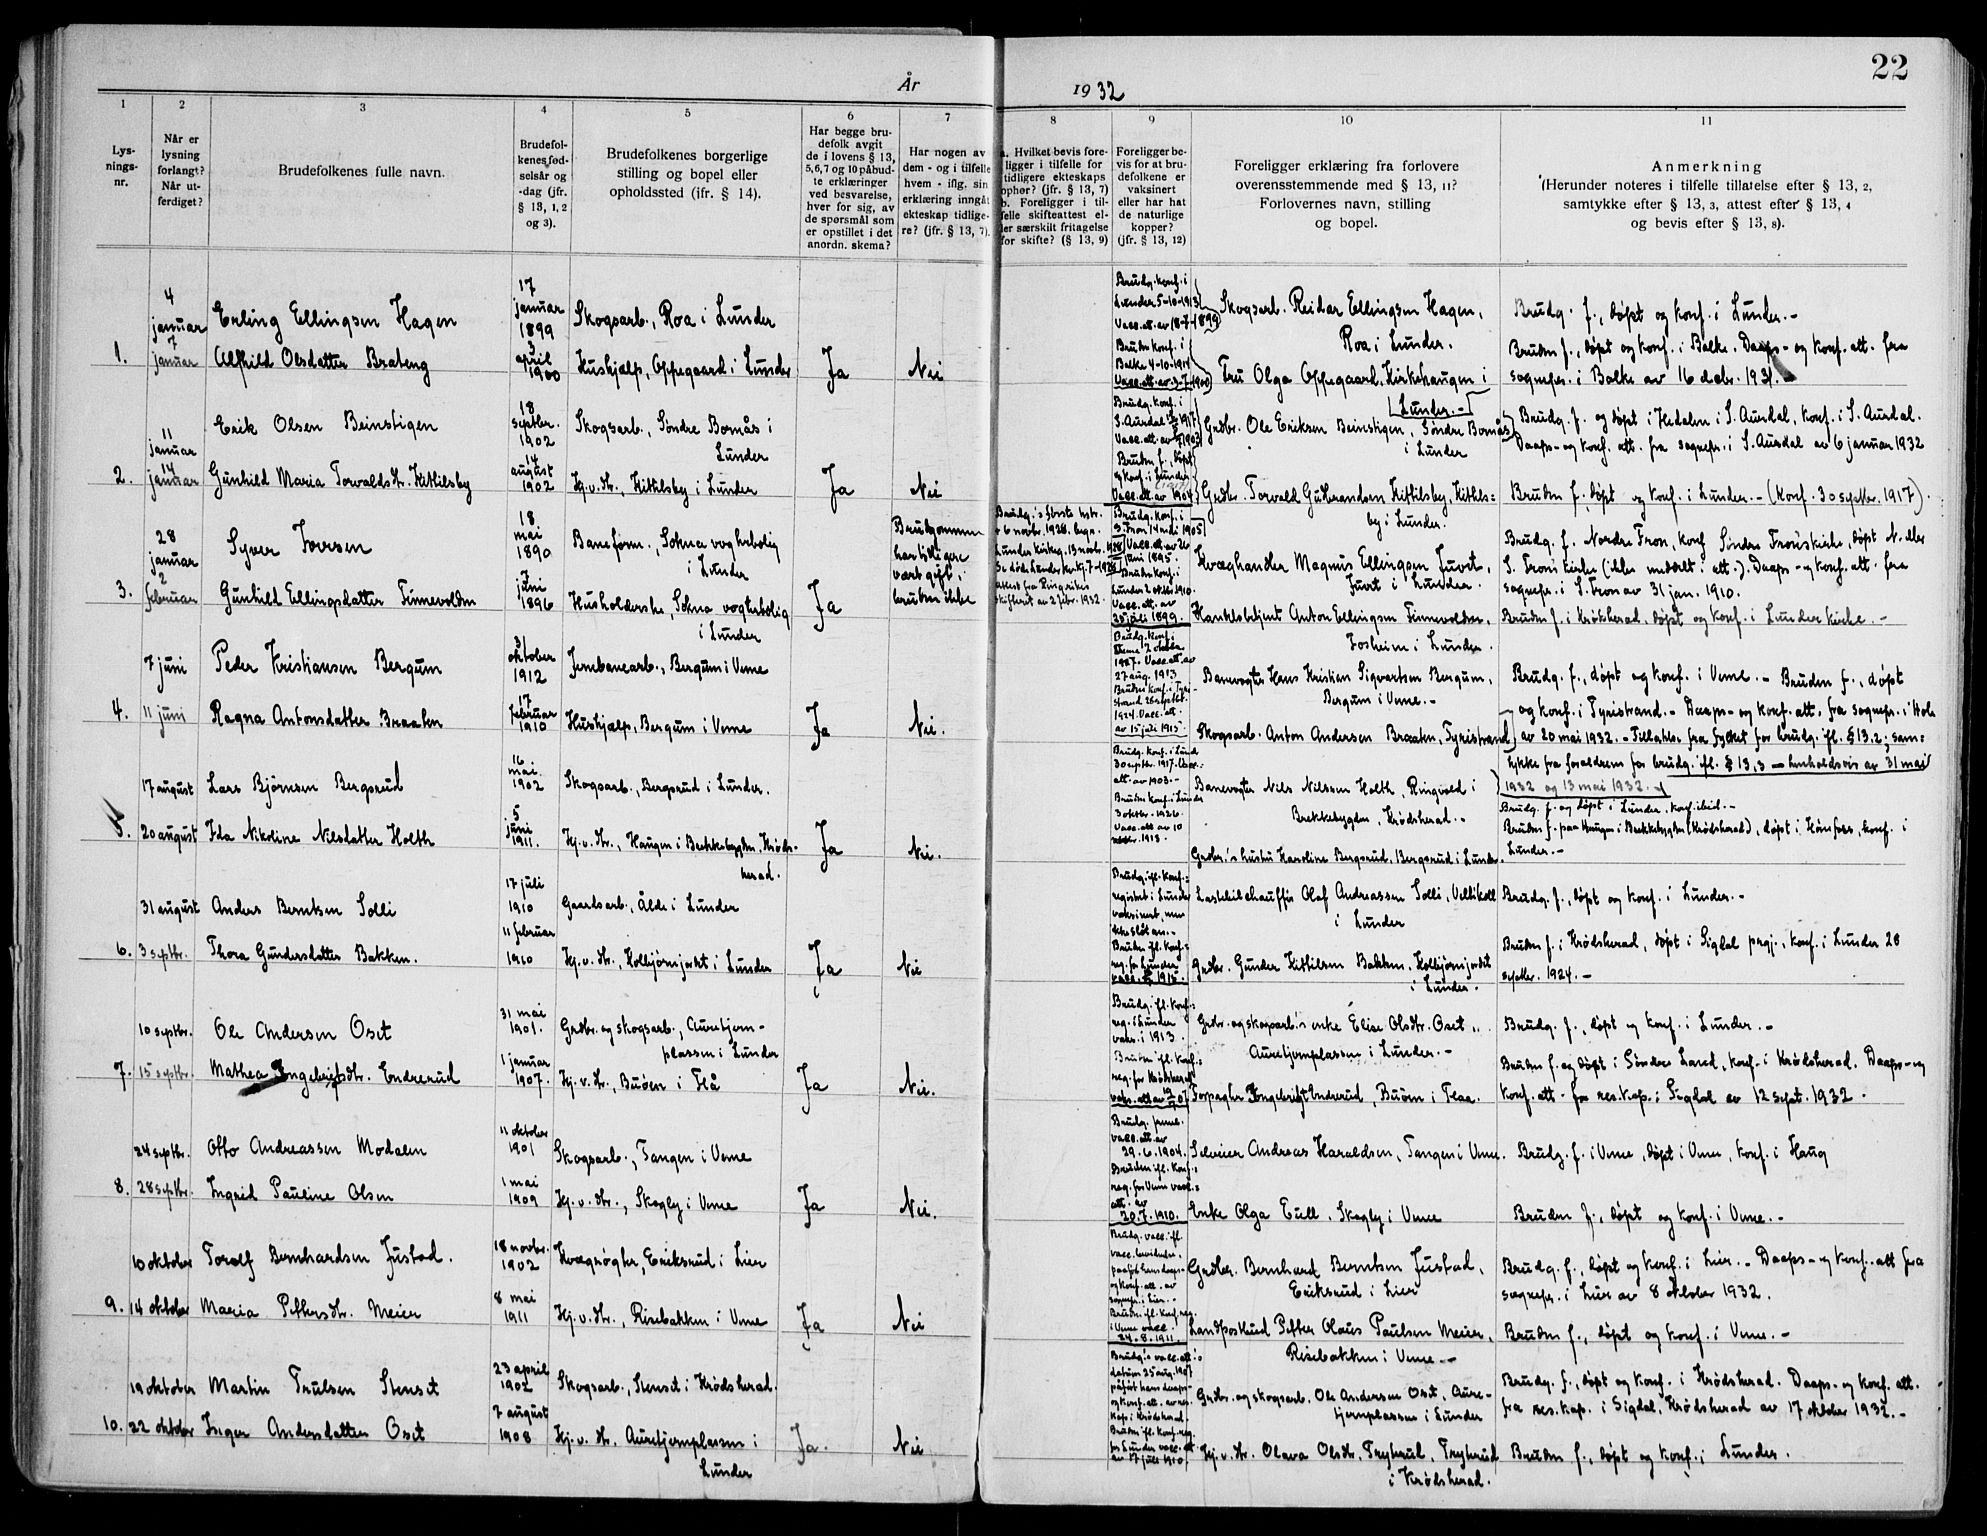 22
År 1932
1 2 3 4 5 6 7 8 9 10 11
Lys-
nings-
nr.
Når er
lysning
forlangt?
Når ut-
ferdiget?
Brudefolkenes fulle navn.
Brudefol-
kenes fød-
selsår og
-dag (jfr.
§ 13, 1, 2
og 3).
Brudefolkenes borgerlige
stilling og bopel eller
opholdssted (ifr. § 14).
Har begge bru-
defolk avgit
de i lovens § 13,
5,6,7 og 10 påbud-
te erklæringer
ved besvarelse,
hver for sig, av
de spørsmål som
er opstillet i det
anordn. skema?
Har nogen av
dem - og i tilfelle
hvem - iflg. sin
erklæring inngåt
ekteskap tidlige-
re? (jfr. § 13, 7).
a. Hvilket bevis fore-
ligger i tilfelle for
tidligere ekteskaps
ophør? (jfr. § 13, 7)
b. Foreligger i til-
felle skifteattest el-
ler særskilt fritagelse
for skifte? (§ 13, 9)
Foreligger be-
vis for at bru-
defolkene er
vaksinert
eller har hat
de naturlige
kopper?
(jfr. § 13, 12)
Foreligger erklæring fra forlovere
overensstemmende med § 13, 11?
Forlovernes navn, stilling
og bopel.
Anmerkning
(Herunder noteres i tilfelle tillatelse efter § 13, 2,
samtykke efter § 13, 3, attest efter § 13, 4
og bevis efter § 13, 8).
1.
4
januar
7
januar
Erling Ellingsen Hagen
Alfhild Olsdatter Brateng
17
januar
1899
3
april
1900
Skogsarb., Roa i Lunder
Hushjælp, Oppegaard i Lunder
Ja
Nei
Brudg. konf. i
Lunder 5-10-1913
Vacc. att. av 18-7-1899
Bruden konf. i
Balke 4-10-1914
Vacc. att. av 3-7-1900
Skogsarb. Reidar Ellingsen Hagen,
Roa i Lunder.
Fru Olga Oppegaard, Kirkehaugen i
Lunder.-
Brudg. f., døpt og konf. i Lunder.-
Bruden f., døpt og konf. i Balke. Daaps- og konf. att. fra
sognepr. i Balke av 16 decbr. 1931.-
2.
11
januar
14
januar
Erik Olsen Beinstigen
Gunhild Maria Torvaldsdtr. Kittilsby
18
septbr.
1902
14
august
1902
Skogsarb., Søndre Bornås i
Lunder
Hj.v.dtr., Kittilsby i Lunder
Ja
Nei
Brudg. konf. i
S. Aurdal 1917
Bruden f., døpt
og konf. i Lunder
Vacc. att. av 1904
Grdbr. Ole Eriksen Beinstigen, Søndre Bornås
i Lunder
Grdbr. Torvald Guttormsen Kittilsby, Kittils-
by i Lunder.
Brudg. f. og døpt i Hedalen i S. Aurdal, konf. i S. Aurdal.
Daaps- og konf. att. fra sognepr. i S. Aurdal av 6 januar 1932
Bruden f. døpt og konf. i Lunder.- (konf. 30 septbr. 1917).
3.
28
januar
2
februar
Syver Iversen
Gunhild Ellingsdatter Finnevolden
18
mai
1890
7
juni
1896
Baneform., Sokna vogterbolig
i Lunder
Husholderske, Sokna vogterbolig
i Lunder
Ja
Brudgommen
har tidligere
vært gift,
bruden ikke
Brudg.'s første hstr.
† 6 novbr. 1928, begr.
Lunder kirkeg. 13 novbr. 1928
attest fra Ringerikes
skifterett av 2 febr. 1932.
Brudg. konf. i
S. Fron 14 mai 1905
Vacc. att. av 26
juni 1895
Bruden konf. i
Lunder 2 oktbr. 1910.
Vacc. att. av
25 juli 1899.
Kvæghandler Magnus Ellingsen Juvet,
Juvet i Lunder.
Handelsbetjent Anton Ellingsen Finnevolden,
Josheim i Lunder.
Brudg. f. Nordre Fron, konf. Søndre Frons kirke, døpt N. eller
S. Frons kirke (ikke anført i att.). Daaps- og konf. att. fra
sognepr. i S. Fron av 31 jan. 1910.
Bruden f. i Krødsherad, døpt og konf. i Lunder kirke.-
4.
7 juni
11 juni
Peder Kristiansen Bergum
Ragna Antonsdatter Braaten
31
oktober
1912
17
februar
1910
Jernbanearb., Bergum i Veme
Hushjælp, Bergum i Veme
Ja
Nei.
Brudg. konf. i
Veme 2 oktbr.
1927. Vacc. att. av
27 aug. 1913
Bruden konf. i Tyri-
strand 28 septbr.
1924. Vacc. att.
av 15 juli 1915
Banevogter Hans Kristian Sigvartsen Bergum,
Bergum i Veme.-
Skogsarb. Anton Andersen Braaten, Tyristrand
Brudg. f., døpt og konf. i Veme.- Bruden f., døpt
og konf. i Tyristrand.- Daaps- og konf. att. fra sognepr. i Hole
av 20 mai 1932.- Tillatelse fra fylket for brudg. ifl. § 13.2; sam-
tykke fra foreldrene for brudg. ifl. § 13,3 - henholdsvis av 31 mai
1932 og 13 mai 1932.-
5.
17 august
20 august
Lars Bjørnsen Bergsrud
Ida Nikoline Nilsdatter Holth
16
mai
1902
5
juni
1911.
Skogsarb., Bergsrud i Lunder.
Hj.v.dtr., Haugen i Bekkebygden, Krøds-
herad.
Ja
Nei.
Brudg. konf. i Lund
30 septbr. 1917. Vacc.
att. av 1903.-
Bruden konf. i Lunder
3 oktbr. 1926.
Vacc. att. av 10
1918.
Banevogter Nils Nilssen Holth, Ringvold i
Bekkebygden, Krødsherad.-
Grdbr.'s hustru Karoline Bergsrud, Bergsrud i Lunder.
Brudg. f. og døpt i Lunder, konf. ibid.-
Bruden f. paa Haugen i Bekkebygden (Krødsherad), døpt i Hønefoss, konf. i
Lunder.-
6.
31 august
3 septbr.
Anders Berntsen Solli
Thora Gundersdatter Bakken.
17 juli
1910
11 februar
1910
Gaardsarb., Ålde i Lunder
Hj.v.dtr., Kolbjørnjordet i Lunder
Ja
Nei
Brudg. ifl. konf.-
registret i Lunder
vaksinert, men
Bruden ifl. konf.-
reg. for Lunder
Lastebilchauffør Olaf Andreassen Solli, Vellikoll
i Lunder
Grdbr. Gunder Kittilsen Bakken, Kolbjørnjordet
i Lunder.
Brudg. f., døpt og konf. i Lunder.-
Bruden f. i Krødsherad, døpt i Sigdal prgj., konf. i Lunder 28
septbr. 1924.-
7.
10 septbr.
15 septbr.
Ole Andersen Oset
Mathea Ingebrigtsdtr. Endrerud
31 mai
1901.
1 januar
1907.
Grdbr. og skogsarb., Auretjern-
plassen i Lunder
Hj.v.dtr., Buøen i Flå
Ja
Nei.
Brudg. ifl. konf.-
reg. i Lunder
vaks. i 1913.
Bruden ifl. konf.-
reg. for Krødsherad
Grdbr. og skogsarb.'s enke Elise Olsdtr. Oset,
Auretjernplassen i Lunder.-
Forpagter Ingebrigt Endrerud, Buøen i Flaa.
Brudg. f., døpt og konf. i Lunder.-
Bruden f. og døpt i Søndre Land, konf. i Krødsherad. Daaps- og
konf. att. fra res. kap. i Sigdal av 12 sept. 1932.
8.
24 septbr.
28 septbr.
Otto Andreassen Modalen
Ingrid Pauline Olsen
11 oktober
1901
1 mai
1909
Skogsarb., Tangen i Veme
Hj.v.dtr., Skogly i Veme
Ja
Nei.
Brudg.
vacc. att. av
29.6.1904.
Bruden ifl. konf.-
reg. for Veme vacc.
att. av
20.7.1910.
Seleier Andreas Haraldsen, Tangen i Veme.
Enke Olga Eull, Skogly i Veme
Brudg. f. i Veme, døpt i Veme, konf. i Haug
Bruden f., døpt og konf. i Veme.-
9.
10 oktober
14 oktober
Torolf Bernhardsen Justad.
Maria Pettersdtr. Meier
18 novbr.
1902
8 mai
1911
Kvægrøgter, Eriksrud i Lier
Hj.v.dtr., Risebakken i Veme
Ja
Nei
Brudg. vacc. ifl.
og konf. att. av
sognepr. i Lier.-
Bruden ifl. konf. reg.
i Veme vacc.
24.8.1911.
Grdbr. Bernhard Berntsen Justad,
Eriksrud i Lier
Landpostbud Petter Olaus Paulsen Meier,
Risebakken i Veme.-
Brudg. f., døpt og konf. i Lier.- Daaps- og konf. att fra
sognepr. i Lier av 8 oktober 1932.
Bruden f., døpt og konf. i Veme.-
10.
19 oktober
22 oktober
Martin Trulsen Stenset
Inger Andersdatter Oset
23 april
1902
7 august
1908
Skogsarb., Stenset i Krødsherad.
Hj.v.dtr. Auretjernplassen i
Lunder
Ja.
Nei
Brudg.'s vacc. att.'s
datum 25 aug. 1907
påført hans daaps-
og konf. att. av res.
kap. i Krødsherad.
Bruden ifl. konf. reg.
for Lunder vacc. att
av 17 juli 1910
Grdbr. og skogsarb. Ole Andersen Oset, Aure-
tjernplassen i Lunder
Hj.v.dtr. Olava Olsdtr. Tryterud, Tryterud
i Krødsherad.
Brudg. f., døpt og konf. i Krødsherad. Daaps- og konf. att.
fra res. kap. i Sigdal, Krødsherad av 17 oktober 1932.-
Bruden f., døpt og konf. i Lunder.